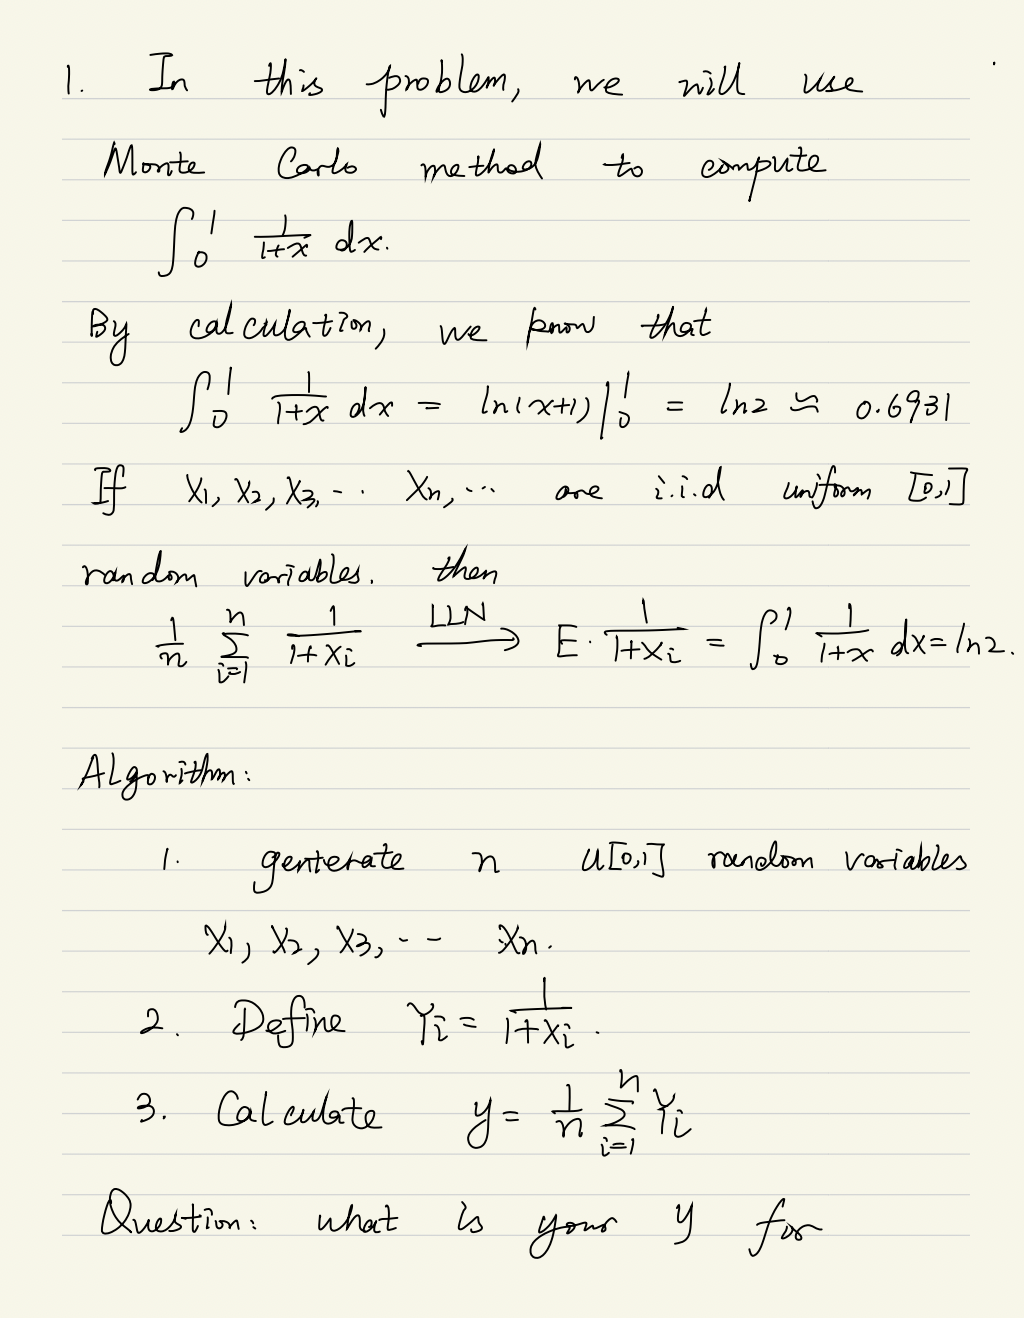 1. In this problem, we will use
Monte Carlo method to compute
∫₀¹ 1/(1+x) dx.
By calculation, we know that
∫₀¹ 1/(1+x) dx = ln(x+1)|₀¹ = ln2 ≈ 0.6931
If X₁, X₂, X₃, ... Xn, ... are i.i.d uniform [0,1]
random variables. then
1/n Σᵢ₌₁ⁿ 1/(1+Xᵢ) —LLN→ E · 1/(1+Xᵢ) = ∫₀¹ 1/(1+x) dx = ln2.
Algorithm:
1. genterate n U[0,1] random variables
X₁, X₂, X₃, -- Xn.
2. Define Yᵢ = 1/(1+Xᵢ).
3. Calculate y = 1/n Σᵢ₌₁ⁿ Yᵢ
Question: what is your y for